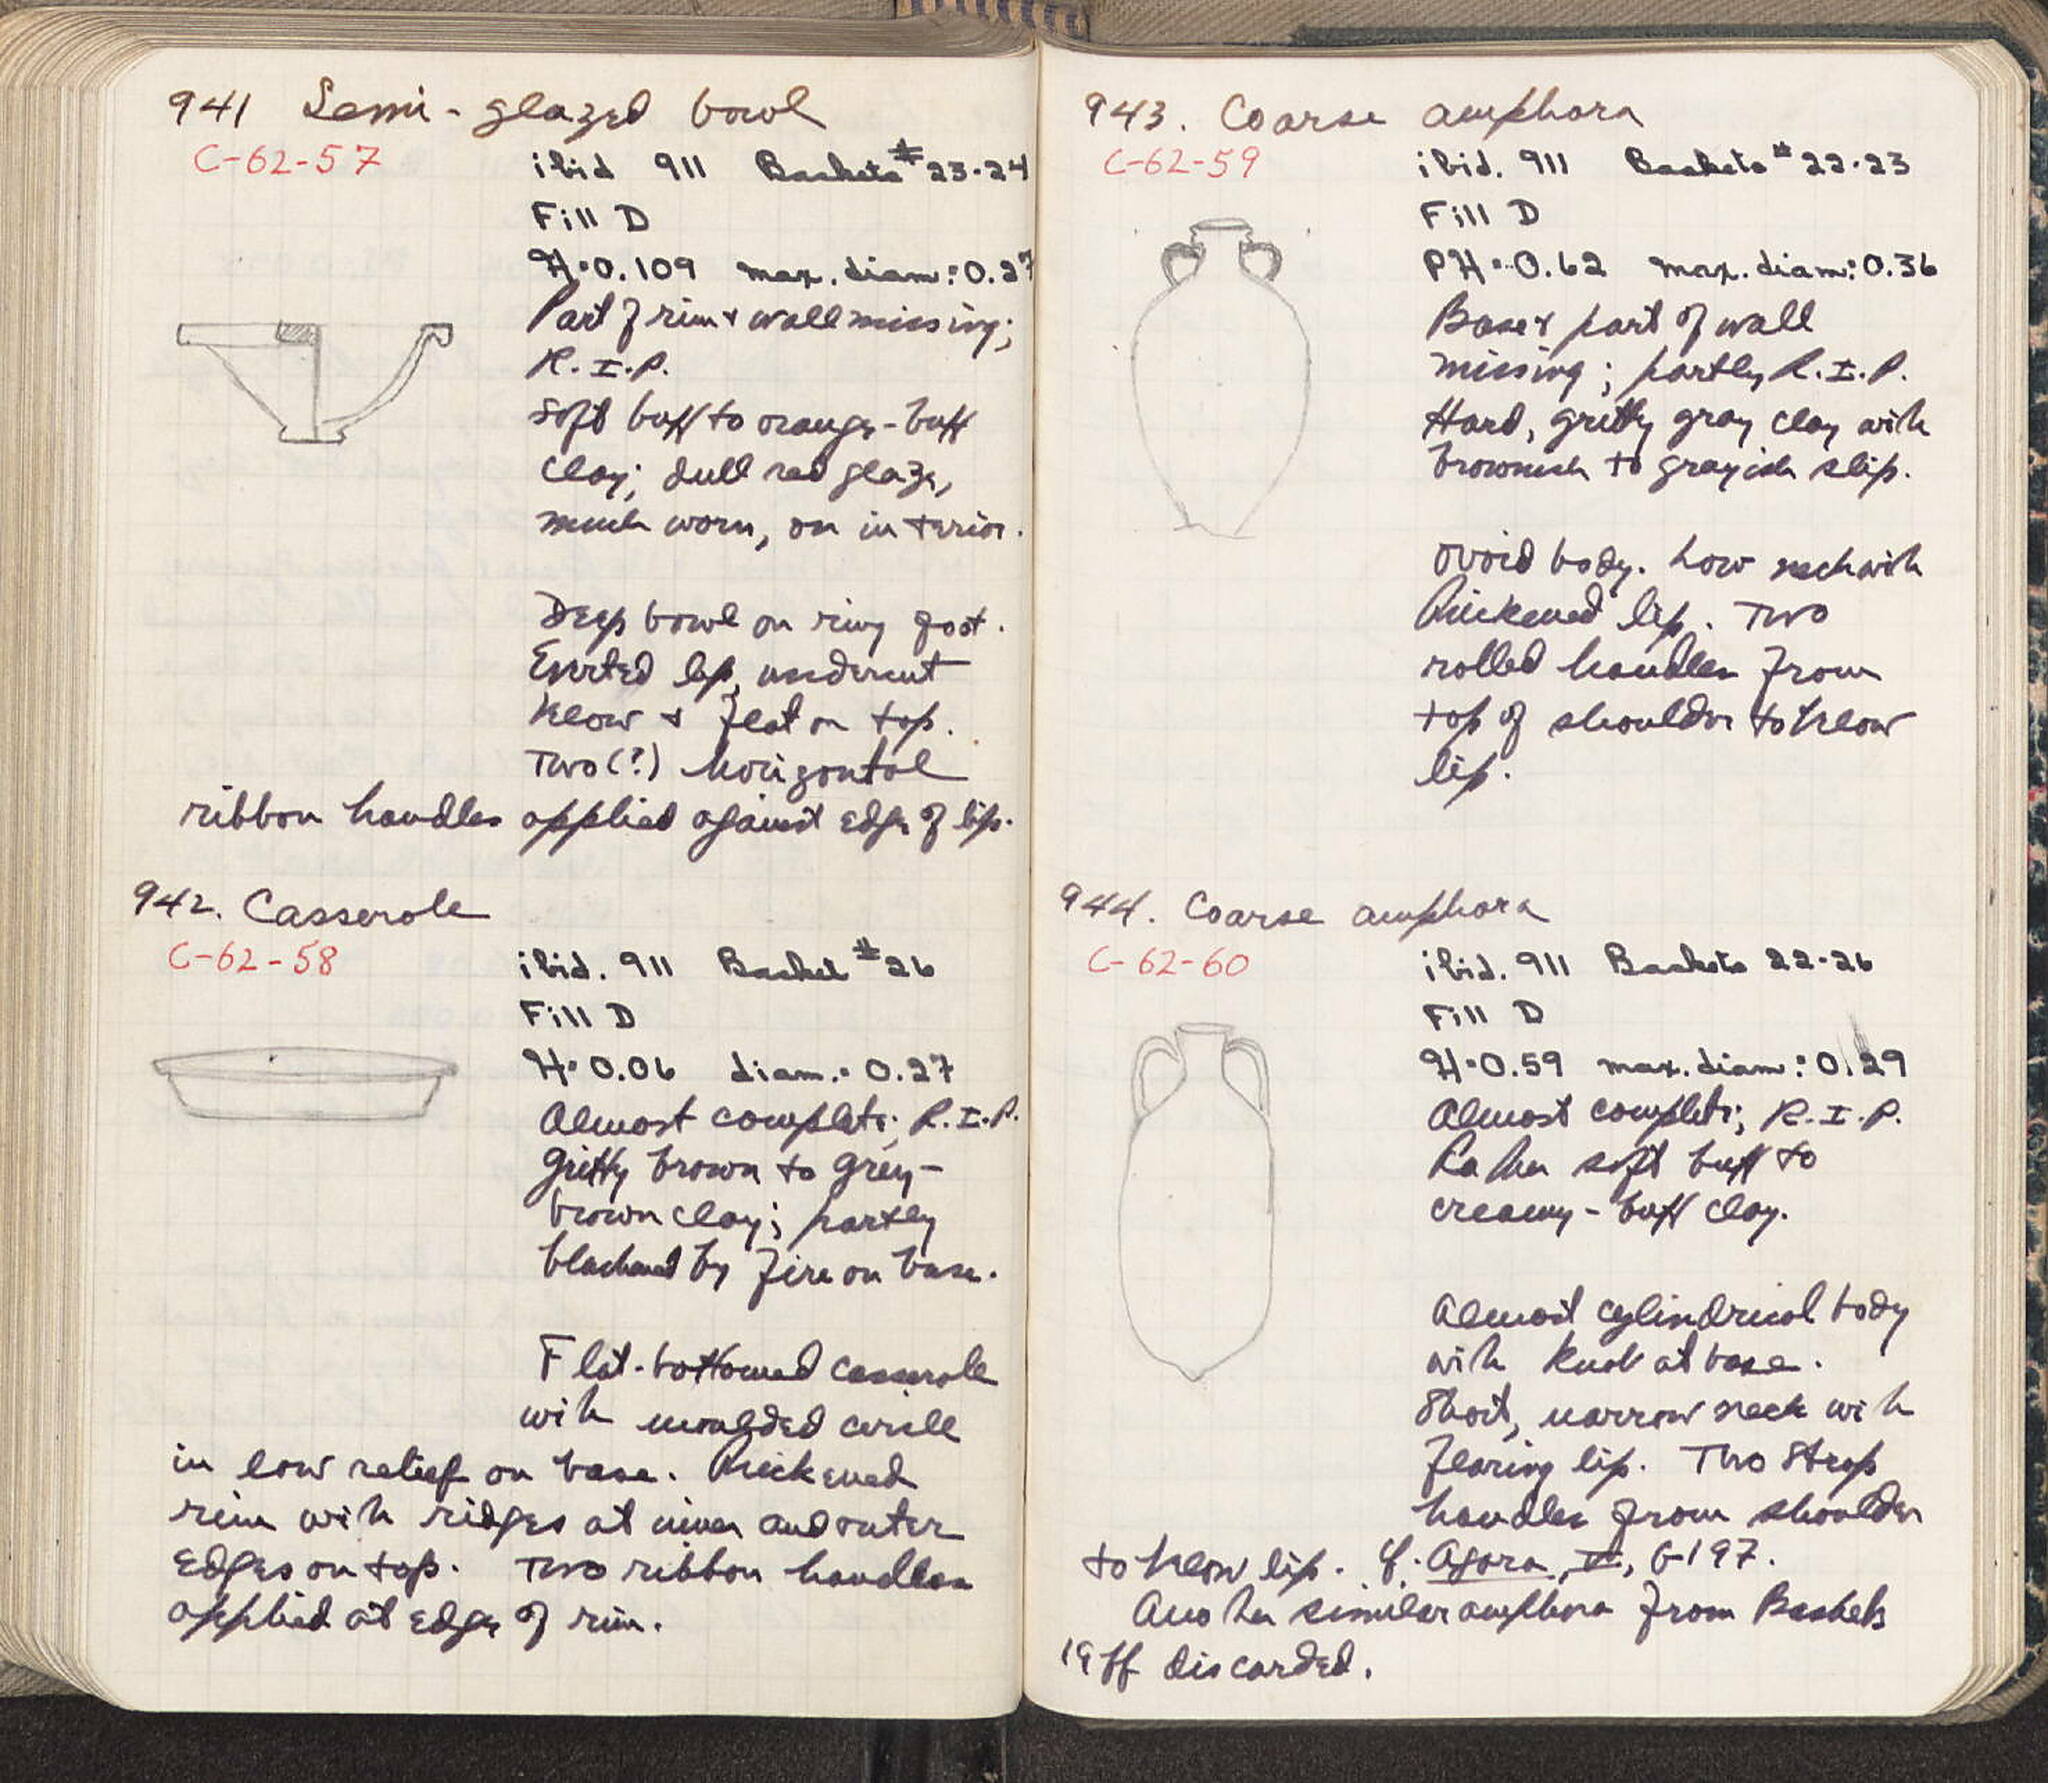 941 Semi-glazed bowl
C-62-57
ibid 911 Baskets #23-24
Fill D
H: 0.109 max. diam: 0.27
Part of rim & wall missing;
R.I.P.
Soft buff to orange-buff
clay; dull red glaze,
much worn, on interior.
Deep bowl on ring foot.
Everted lip, undercut
below & flat on top.
Two (?) horizontal
ribbon handles applied against edge of lip.
942. Casserole
C-62-58
ibid. 911 Basket #26
Fill D
H: 0.06 diam.: 0.27
Almost complete; R.I.P.
Gritty brown to grey-
brown clay; partly
blackened by fire on base.
Flat-bottomed casserole
with moulded circle
in low relief on base. Thickened
rim with ridges at inner and outer
edges on top. Two ribbon handles
applied at edge of rim.
943. Coarse amphora
C-62-59
ibid. 911 Baskets #22-23
Fill D
PH: 0.62 max. diam: 0.36
Base & part of wall
missing; partly R.I.P.
Hard, gritty gray clay with
brownish to grayish slip.
Ovoid body. Low neck with
thickened lip. Two
rolled handles from
top of shoulder to below
lip.
944. Coarse amphora
C-62-60
ibid. 911 Baskets 22-26
Fill D
H: 0.59 max. diam: 0.29
Almost complete; R.I.P.
Rather soft buff to
creamy-buff clay.
Almost cylindrical body
with knob at base.
Short, narrow neck with
flaring lip. Two strap
handles from shoulder
to below lip. Cf. Agora, V, G 197.
Another similar amphora from Baskets
19 ff discarded.